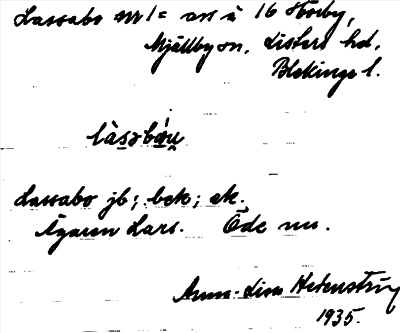 Lassabo nr 1 = av å 16 Horby,
Mjällby sn. Listers hd.
Blekinge l.
Lassabo jb; bek; ek.
Ägaren Lars. Öde nu.
Anna-Lisa Hedenström
1935.